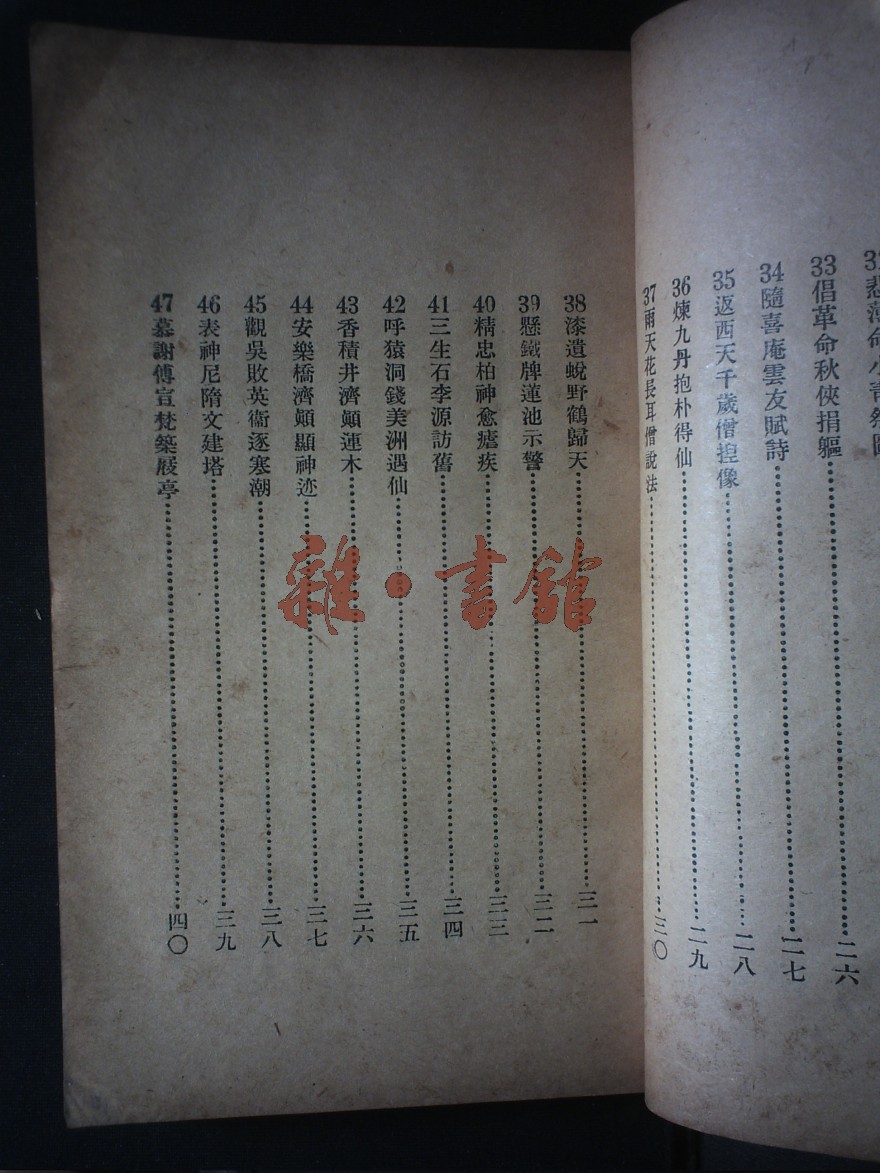 33倡革命秋俠捐軀……二六
34隨喜庵雲友賦詩……二七
35返西天千歲僧揑像……二八
36煉九丹抱朴得仙……二九
37雨天花長耳僧說法……三〇
38漆遺蛻野鶴歸天……三一
39懸鐵牌蓮池示警……三二
40精忠柏神愈瘧疾……三三
41三生石李源訪舊……三四
42呼猿洞錢美洲遇仙……三五
43香積井濟顚運木……三六
44安樂橋濟顚顯神迹……三七
45觀吳敗英衞逐寒潮……三八
46表神尼隋文建塔……三九
47慕謝傅宣梵築屐亭……四〇
雜·書館